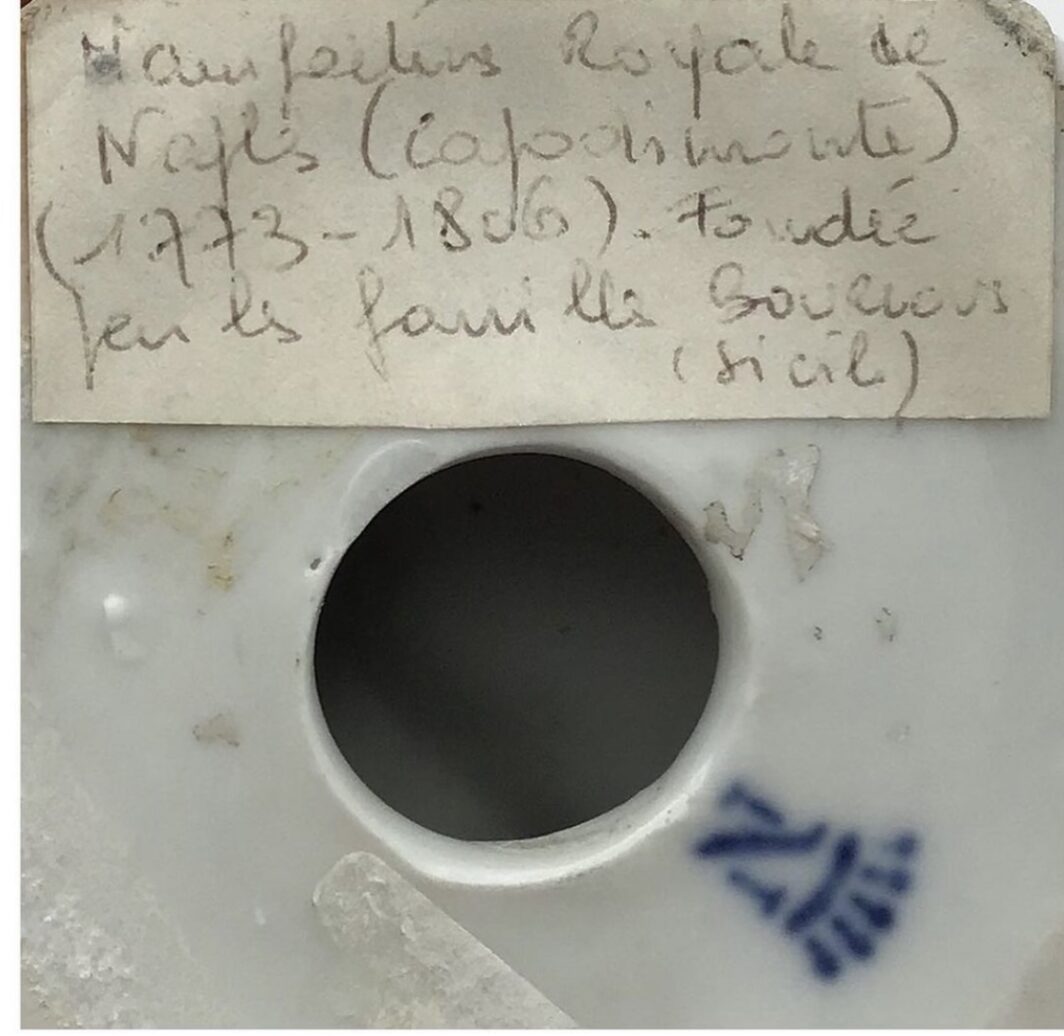 Manufacture Royale de
Naples (Capodimonte)
(1773-1806). Fondée
par les familles Bourbons
(Sicil)
N